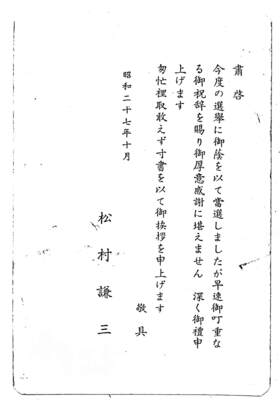 肅啓
今度の選擧に御蔭を以て當選しましたが早速御叮重な
る御祝辞を賜り御厚意感謝に堪えません 深く御禮申
上げます
匆忙裡取敢えず寸書を以て御挨拶を申上げます
敬具
昭和二十七年十月
松村謙三